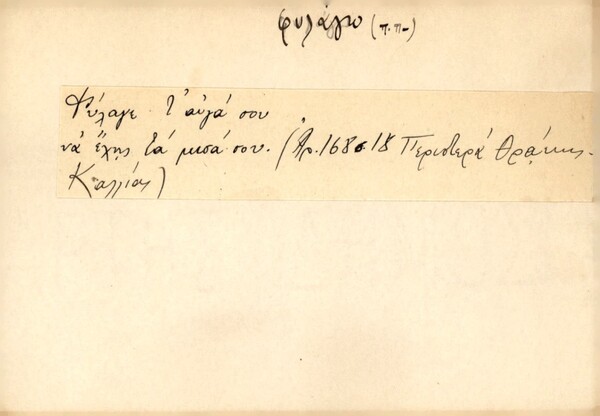 φυλάγω (π.π.)
Φύλαγε τ' αὐγά σου
νά ἔχης τά μισά σου. (Ἀρ. 168 σ. 18 Περιστερά Θράκης-
Καλλίας)